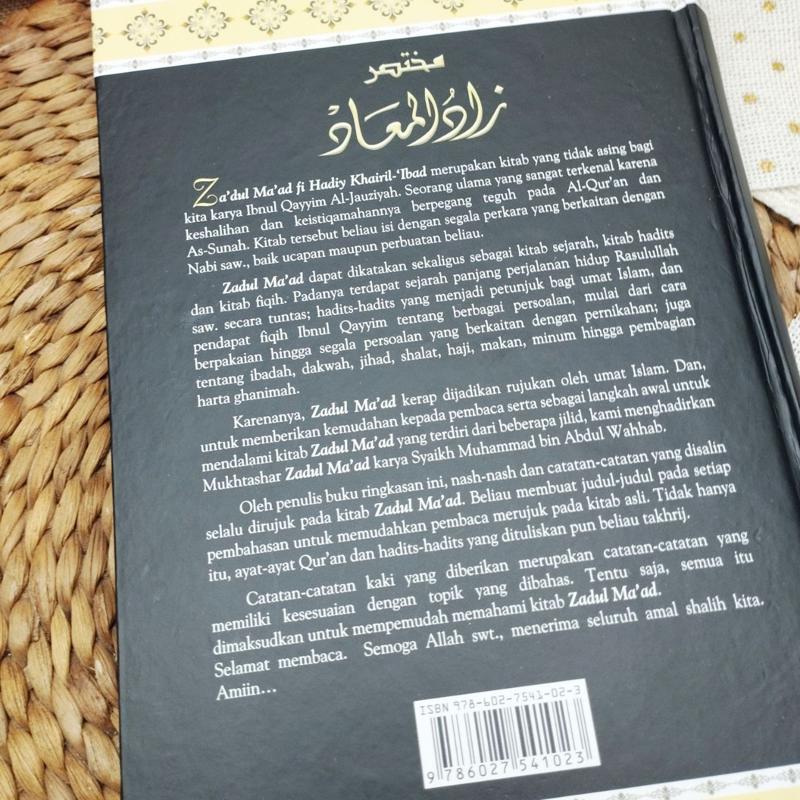 مختصر
زاد المعاد
Za'dul Ma'ad fi Hadiy Khairil-'Ibad merupakan kitab yang tidak asing bagi
kita karya Ibnul Qayyim Al-Jauziyah. Seorang ulama yang sangat terkenal karena
keshalihan dan keistiqamahannya berpegang teguh pada Al-Qur'an dan
As-Sunah. Kitab tersebut beliau isi dengan segala perkara yang berkaitan dengan
Nabi saw., baik ucapan maupun perbuatan beliau.
Zadul Ma'ad dapat dikatakan sekaligus sebagai kitab sejarah, kitab hadits
dan kitab fiqih. Padanya terdapat sejarah panjang perjalanan hidup Rasulullah
saw. secara tuntas; hadits-hadits yang menjadi petunjuk bagi umat Islam, dan
pendapat fiqih Ibnul Qayyim tentang berbagai persoalan, mulai dari cara
berpakaian hingga segala persoalan yang berkaitan dengan pernikahan; juga
tentang ibadah, dakwah, jihad, shalat, haji, makan, minum hingga pembagian
harta ghanimah.
Karenanya, Zadul Ma'ad kerap dijadikan rujukan oleh umat Islam. Dan,
untuk memberikan kemudahan kepada pembaca serta sebagai langkah awal untuk
mendalami kitab Zadul Ma'ad yang terdiri dari beberapa jilid, kami menghadirkan
Mukhtashar Zadul Ma'ad karya Syaikh Muhammad bin Abdul Wahhab.
Oleh penulis buku ringkasan ini, nash-nash dan catatan-catatan yang disalin
selalu dirujuk pada kitab Zadul Ma'ad. Beliau membuat judul-judul pada setiap
pembahasan untuk memudahkan pembaca merujuk pada kitab asli. Tidak hanya
itu, ayat-ayat Qur'an dan hadits-hadits yang dituliskan pun beliau takhrij.
Catatan-catatan kaki yang diberikan merupakan catatan-catatan yang
memiliki kesesuaian dengan topik yang dibahas. Tentu saja, semua itu
dimaksudkan untuk mempemudah memahami kitab Zadul Ma'ad.
Selamat membaca. Semoga Allah swt., menerima seluruh amal shalih kita.
Amiin...
ISBN 978-602-7541-02-3
9 786027 541023